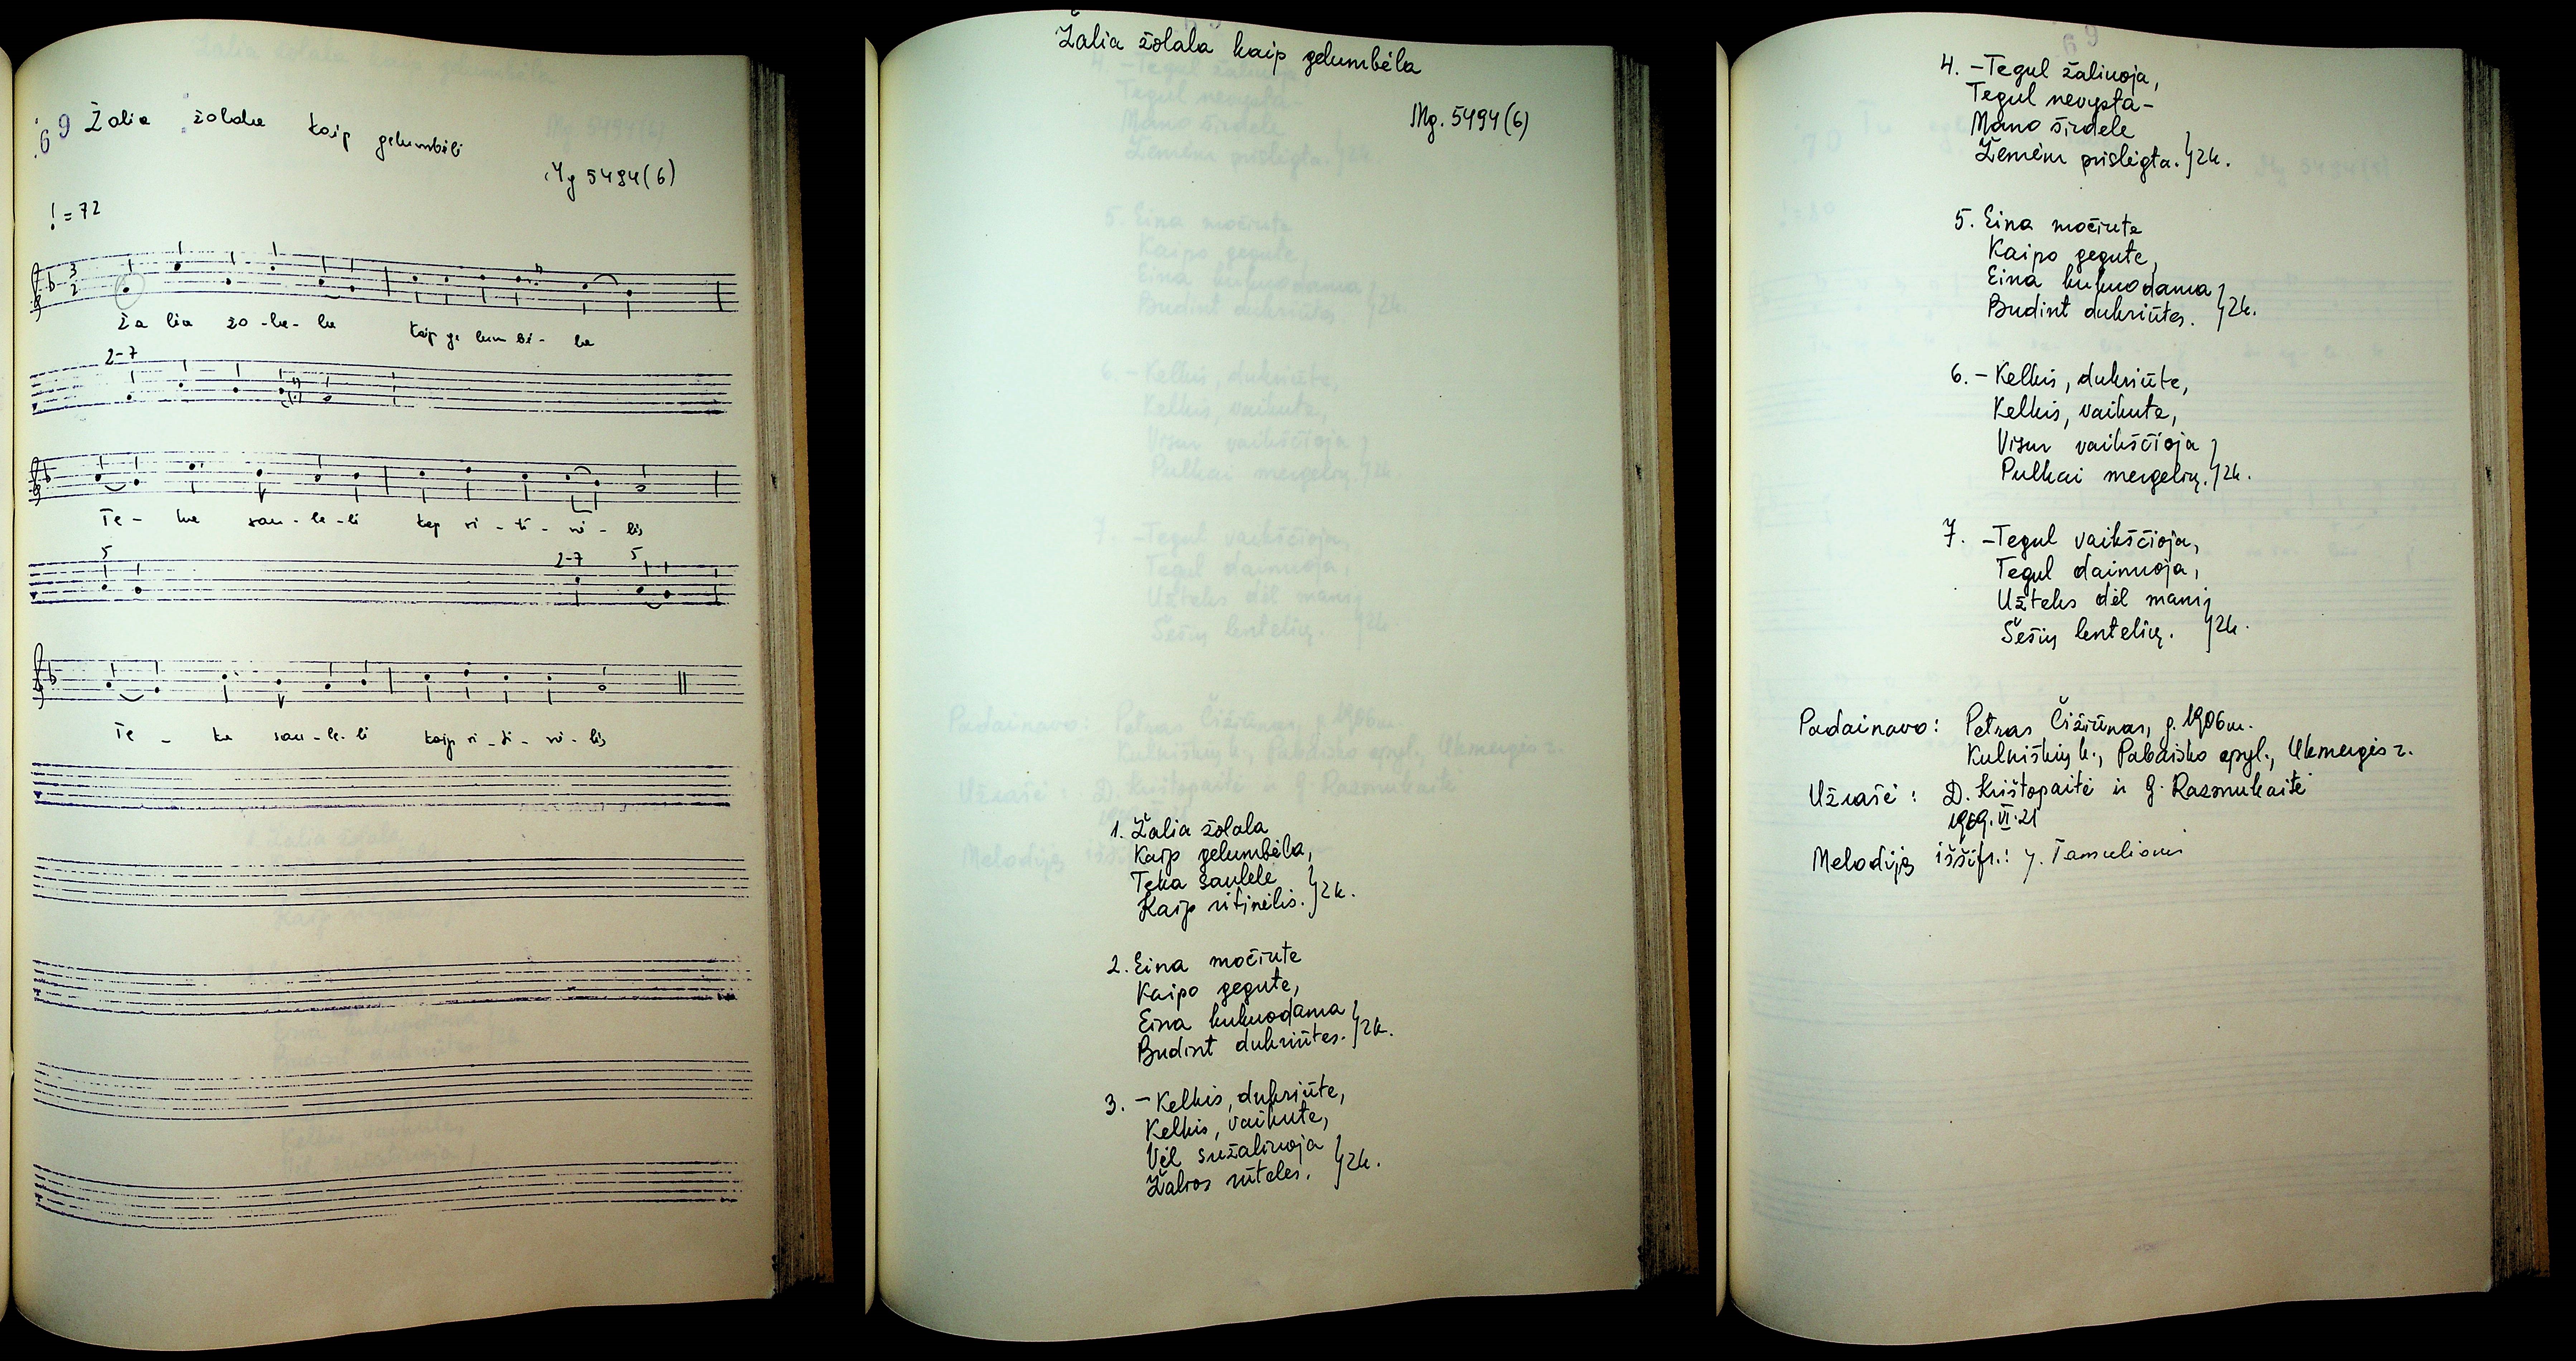 69 Žalia žolala kaip gelumbėli
Mg 5494(6)
= 72
3
2
Ža lia žo - la - la kaip ge lum bė - la
2-7
Te - ka sau - le - li kap ri - ti - ni - lis
5 2-7 5
Te - ka sau - le - li kaip ri - ti - ni - lis
Žalia žolala kaip gelumbėla
Mg. 5494(6)
1. Žalia žolala
Kaip gelumbėla,
Teka saulele
Kaip ritinėlis. }2k.
2. Eina močiute
Kaipo gegute,
Eina kukuodama
Budint dukriūtes. }2k.
3. - Kelkis, dukriūte,
Kelkis, vaikute,
Vėl sužaliuoja
Žalios rūteles. }2k.
69
4. - Tegul žaliuoja,
Tegul nevysta -
Mano širdele
Žemėm prislėgta. }2k.
5. Eina močiute
Kaipo gegute,
Eina kukuodama
Budint dukriūtes. }2k.
6. - Kelkis, dukriūte,
Kelkis, vaikute,
Visur vaikščioja
Pulkai mergelių. }2k.
7. - Tegul vaikščioja,
Tegul dainuoja,
Užteks dėl manį
Šešių lentelių. }2k.
Padainavo: Petras Čižiūnas, g. 1906 m.
Kulniškių k., Pabaisko apyl., Ukmergės r.
Užrašė: D. Krištopaitė ir G. Razmukaitė
1969.VI.21
Melodiją iššifr.: J. Tamulionis